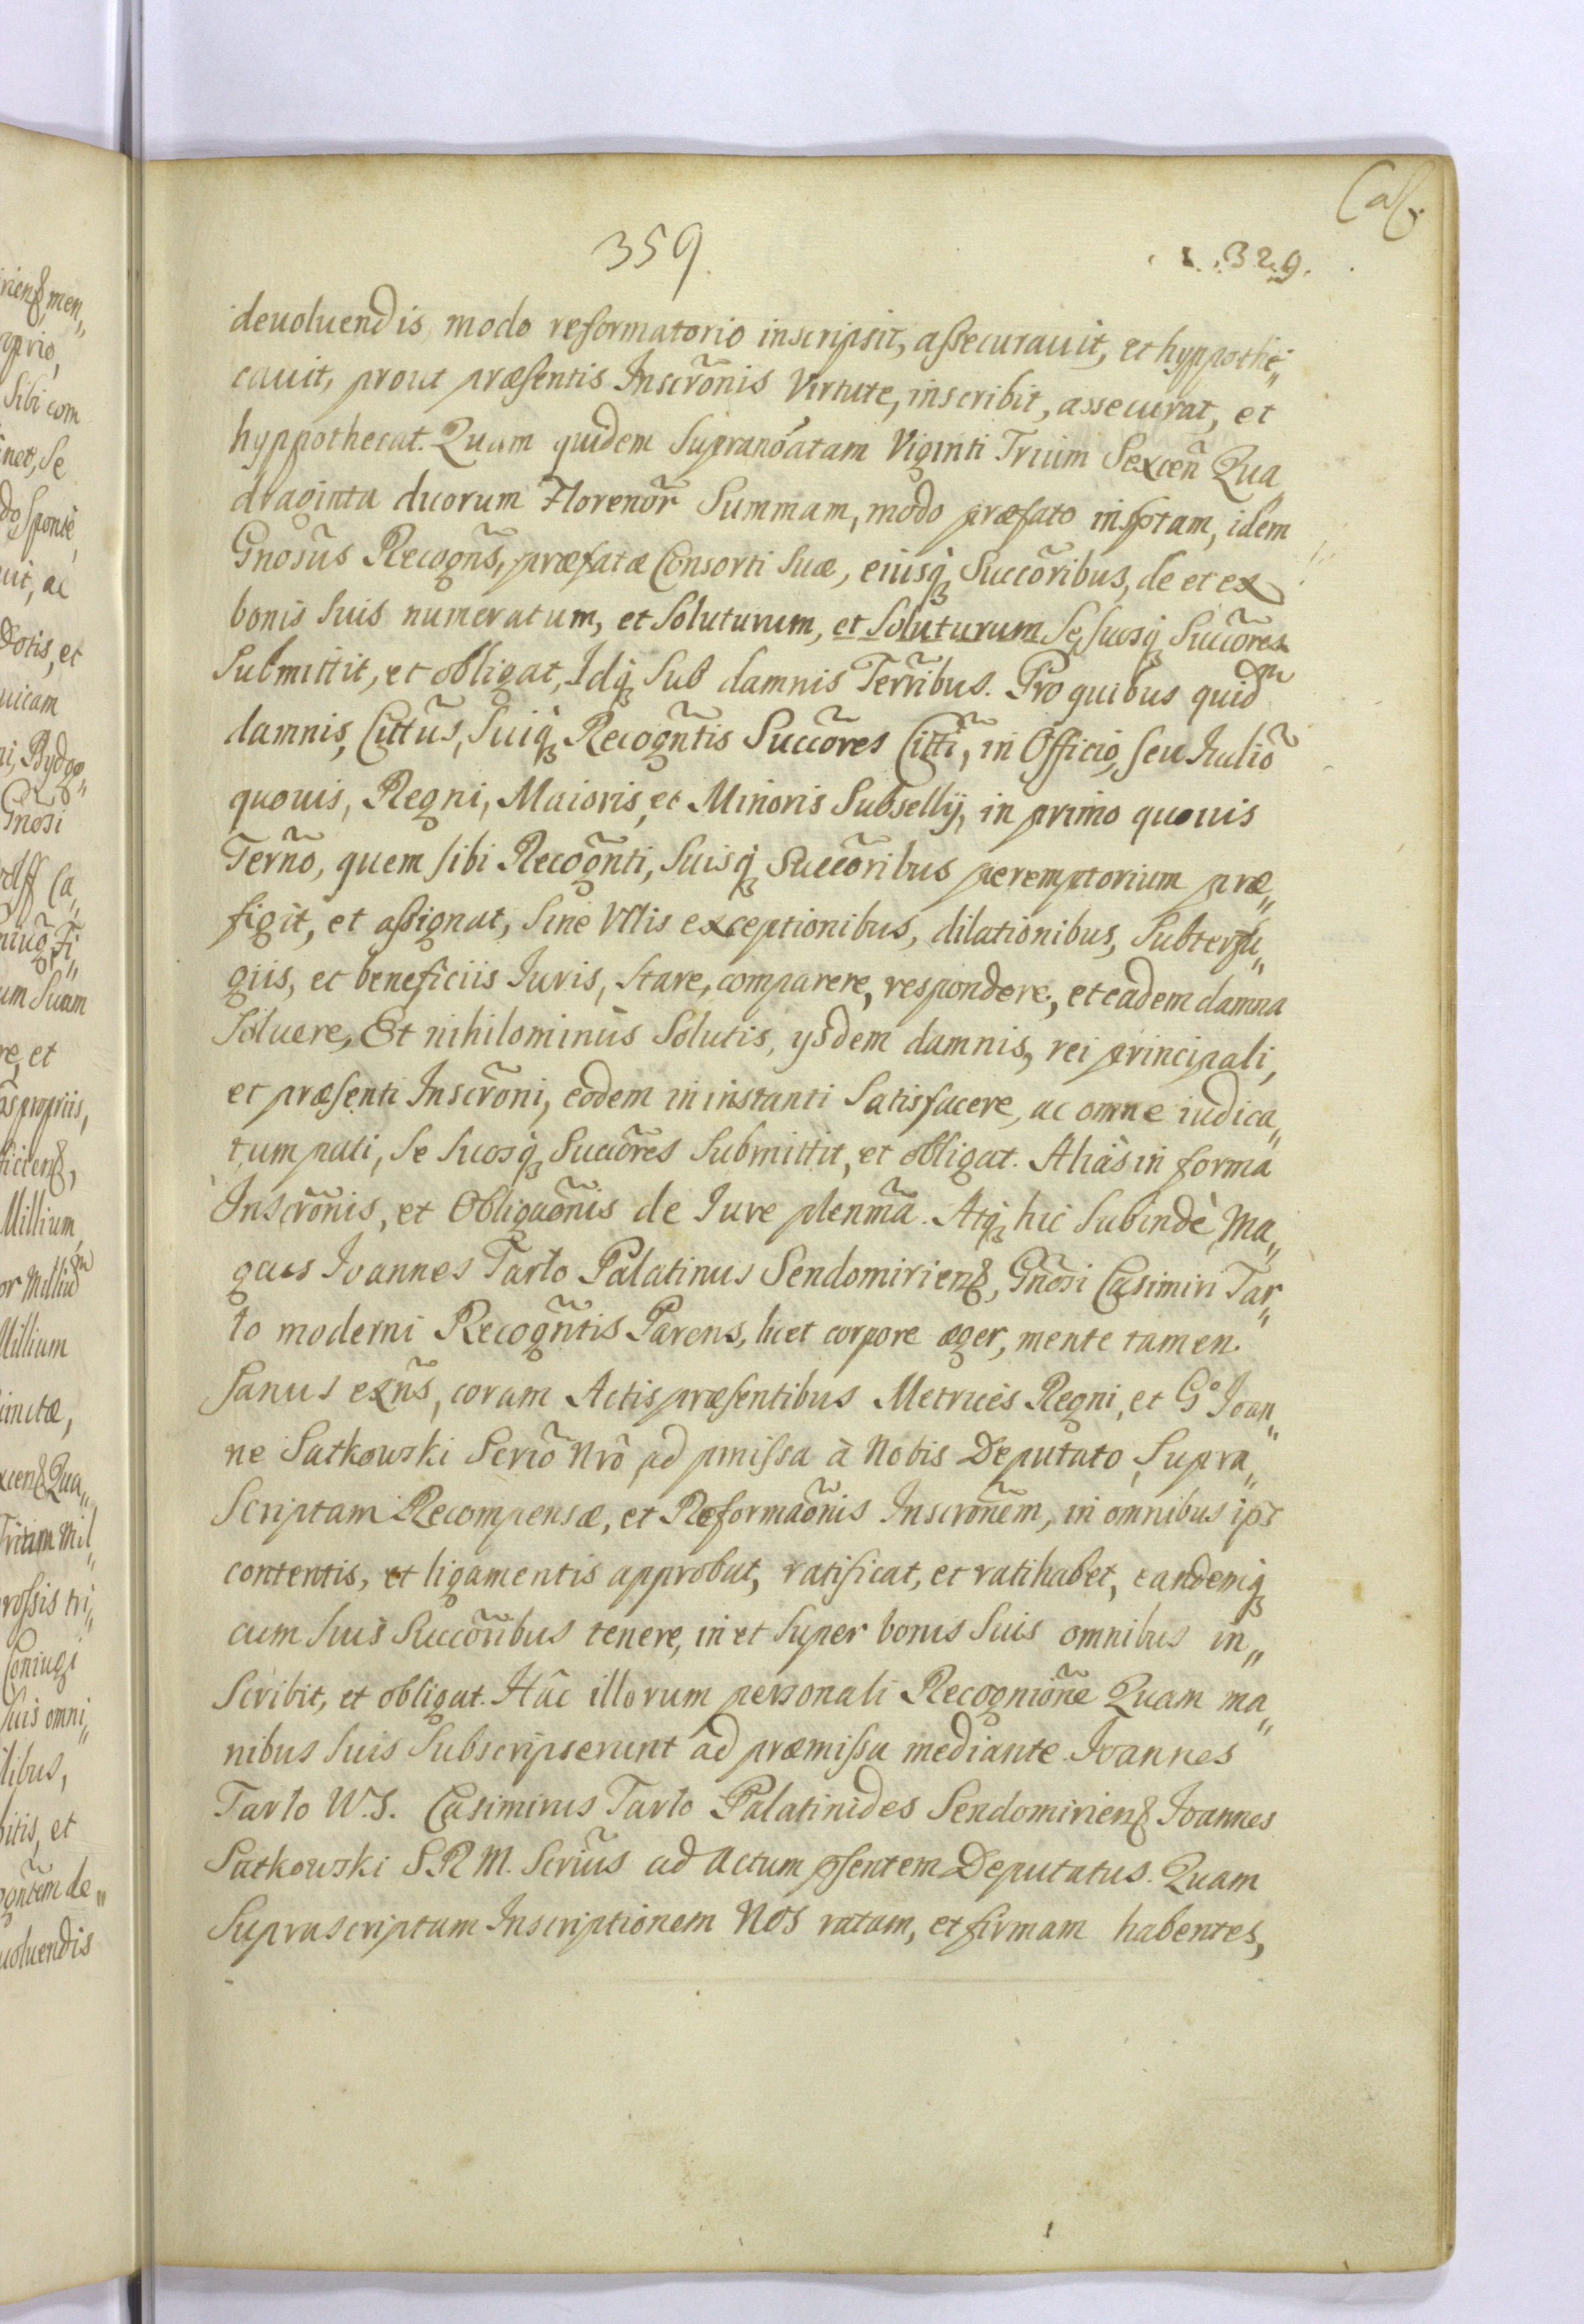 Cas.
359.
329.
devoluendis modo reformatorio inscripsit, assecurauit, et hyppothe„
cauit, prout præsentis Inscr̃onis Virtute, inscribit, assecurat, et
hyppothecat. Quam quidem supranõatam Viginti Trium Sexceñ Qua„
draginta duorum Florenor̃ Summam, modo præfato insptam, idem
Gnosũs Recogñs, præfatæ Consorti suæ, eiusq́ Succõribus, de et ex
bonis suis numeratum, et soluturum, et soluturum se, suosq́ Succõres
submittit, et obligat, Idq́ sub damnis Terr̃ibus. Pro quibus quid̃m
damnis, Cittũs, suiq́ Recogñtis Succõres Citti͂, in Officio, seu Iudiõ
quouis, Regni, Maioris, et Minoris Subsellÿ, in primo quouis
Ter̃no, quem sibi Recogñti, suisq́ Succõribus peremptorium præ„
figit, et assignat, sine Vllis exceptionibus, dilationibus, subterfu„
giis, et beneficiis Iuris, stare, comparere, respondere, et eadem damna
soluere, Et nihilominùs solutis, ysdem damnis, rei principali,
et præsenti Inscr̃oni, eodem in instanti satisfacere, ac omne iudica„
tum pati, se suosq́ Succõres submittit, et obligat. Aliàs in forma
Inscr̃onis, et Obligaõnis de Iure pleñma. Atq́ hic subindè Ma„
gcus Ioannes Tarło Palatinus Sendomiriens, Gnõsi Casimiri Tar„
ło moderni Recogñtis Parens, licet corpore æger, mente tamen
sanus exñs, coram Actis præsentibus Metrices Regni, et Gº Ioan„
ne Satkowski Scriõ Nrõ ad pmissa à Nobis Deputato, supra„
scriptam Recompensæ, et Reformaõnis Inscroñem, in omnibus ips
contentis, et ligamentis approbat, ratificat, et ratihabet, eandemq́
cum suis Succõribus tenere, in et super bonis suis omnibus in„
scribit, et obligat. Hâc illorum personali Recogniõne Quam ma„
nibus suis subscripserunt ad præmissa mediante. Ioannes
Tarło W.S. Casimirus Tarło Palatinides Sendomiriens Ioannes
Satkowski S.R.M. Scriũs ad Actum psentem Deputatus. Quam
supra scriptam Inscriptionem Nos ratam, et firmam habentes,